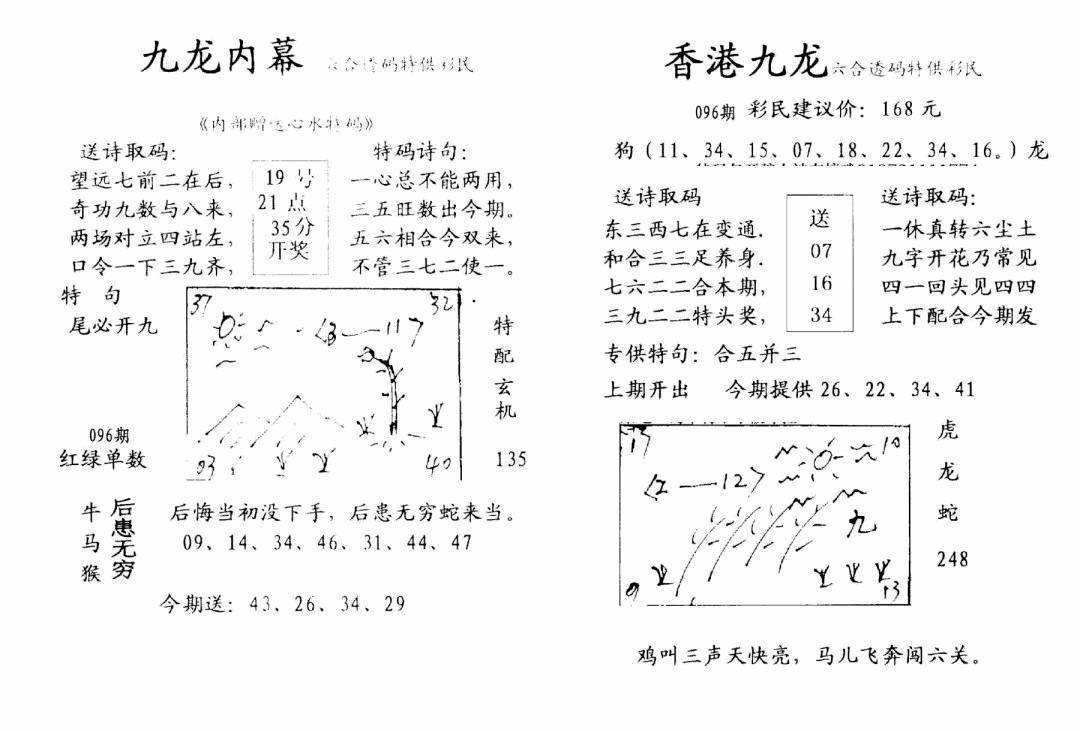 九龙内幕 六合透码特供彩民
《内部赠送心水特码》
送诗取码：
望远七前二在后，
奇功九数与八来，
两场对立四站左，
口令一下三九齐，
19 号
21 点
35分
开奖
特码诗句：
一心总不能两用，
三五旺数出今期。
五六相合今双来，
不管三七二使一。
特 句
尾必开九
096期
红绿单数
37
32
<3——11>
03
40
特
配
玄
机
135
牛
马
猴
后患无穷
后悔当初没下手，后患无穷蛇来当。
09、14、34、46、31、44、47
今期送：43、26、34、29
香港九龙 六合透码特供彩民
096期 彩民建议价：168 元
狗（11、34、15、07、18、22、34、16。）龙
送诗取码
东三西七在变通.
和合三三足养身.
七六二二合本期，
三九二二特头奖，
送
07
16
34
送诗取码：
一休真转六尘土
九字开花乃常见
四一回头见四四
上下配合今期发
专供特句：合五并三
上期开出 今期提供 26、22、34、41
10
——12>
九
13
虎
龙
蛇
248
鸡叫三声天快亮，马儿飞奔闯六关。